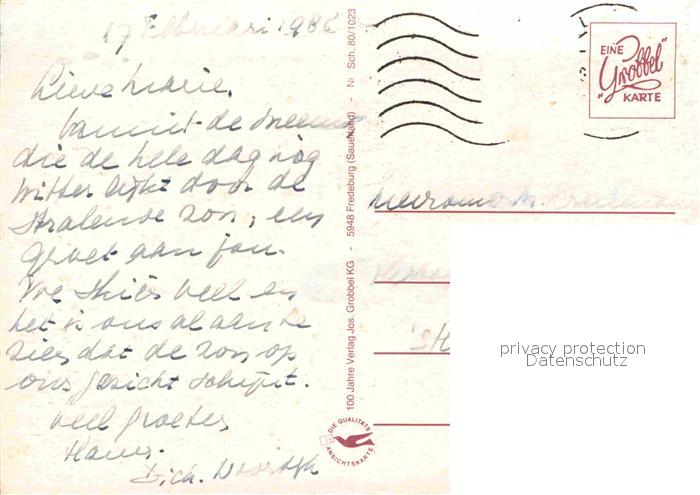 17 Februari 1986
Lieve Marie,
Vanuit de sneeuw
die de hele dag nog
witter lijkt door de
stralende zon, een
groet aan jou.
We skiën veel en
het is ons al aan te
zien dat de zon op
ons gezicht schijnt.
Veel groeten
Hans.
Dick.
100 Jahre Verlag Jos. Grobbel KG - 5948 Fredeburg (Sauerland) - Nr. Sch. 80/1023
DIE QUALITÄTS
ANSICHTSKARTE
EINE
"Grobbel"
KARTE
Mevrouw M.
'sH
privacy protection
Datenschutz